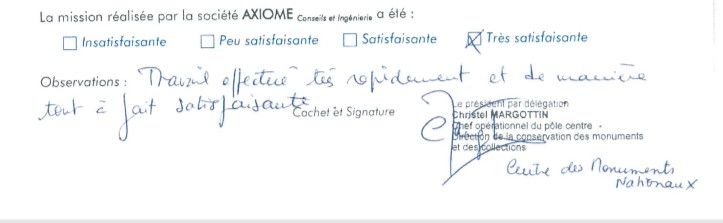 La mission réalisée par la société AXIOME Conseils et Ingénierie a été :
Insatisfaisante Peu satisfaisante Satisfaisante Très satisfaisante
Observations : Travail effectué très rapidement et de manière
tout à fait satisfaisante
Cachet et Signature
Le président par délégation
Christel MARGOTTIN
Chef opérationnel du pôle centre
Direction de la conservation des monuments
et des collections
Centre des Monuments
Nationaux